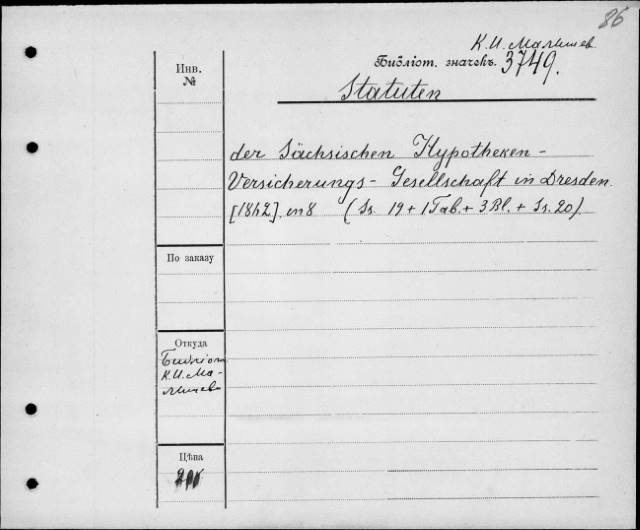 86
К. И. Малышев
Библіот. значекъ. 3749.
Инв.
№
Statuten
der Sächsischen Hypotheken-
Versicherungs-Gesellschaft in Dresden.
[1842]. in 8 (Ss. 19 + 1 Tab. + 3 Bl. + Ss. 20).
По заказу
Откуда
Библіот
К. И. Ма-
лышева
Цѣна